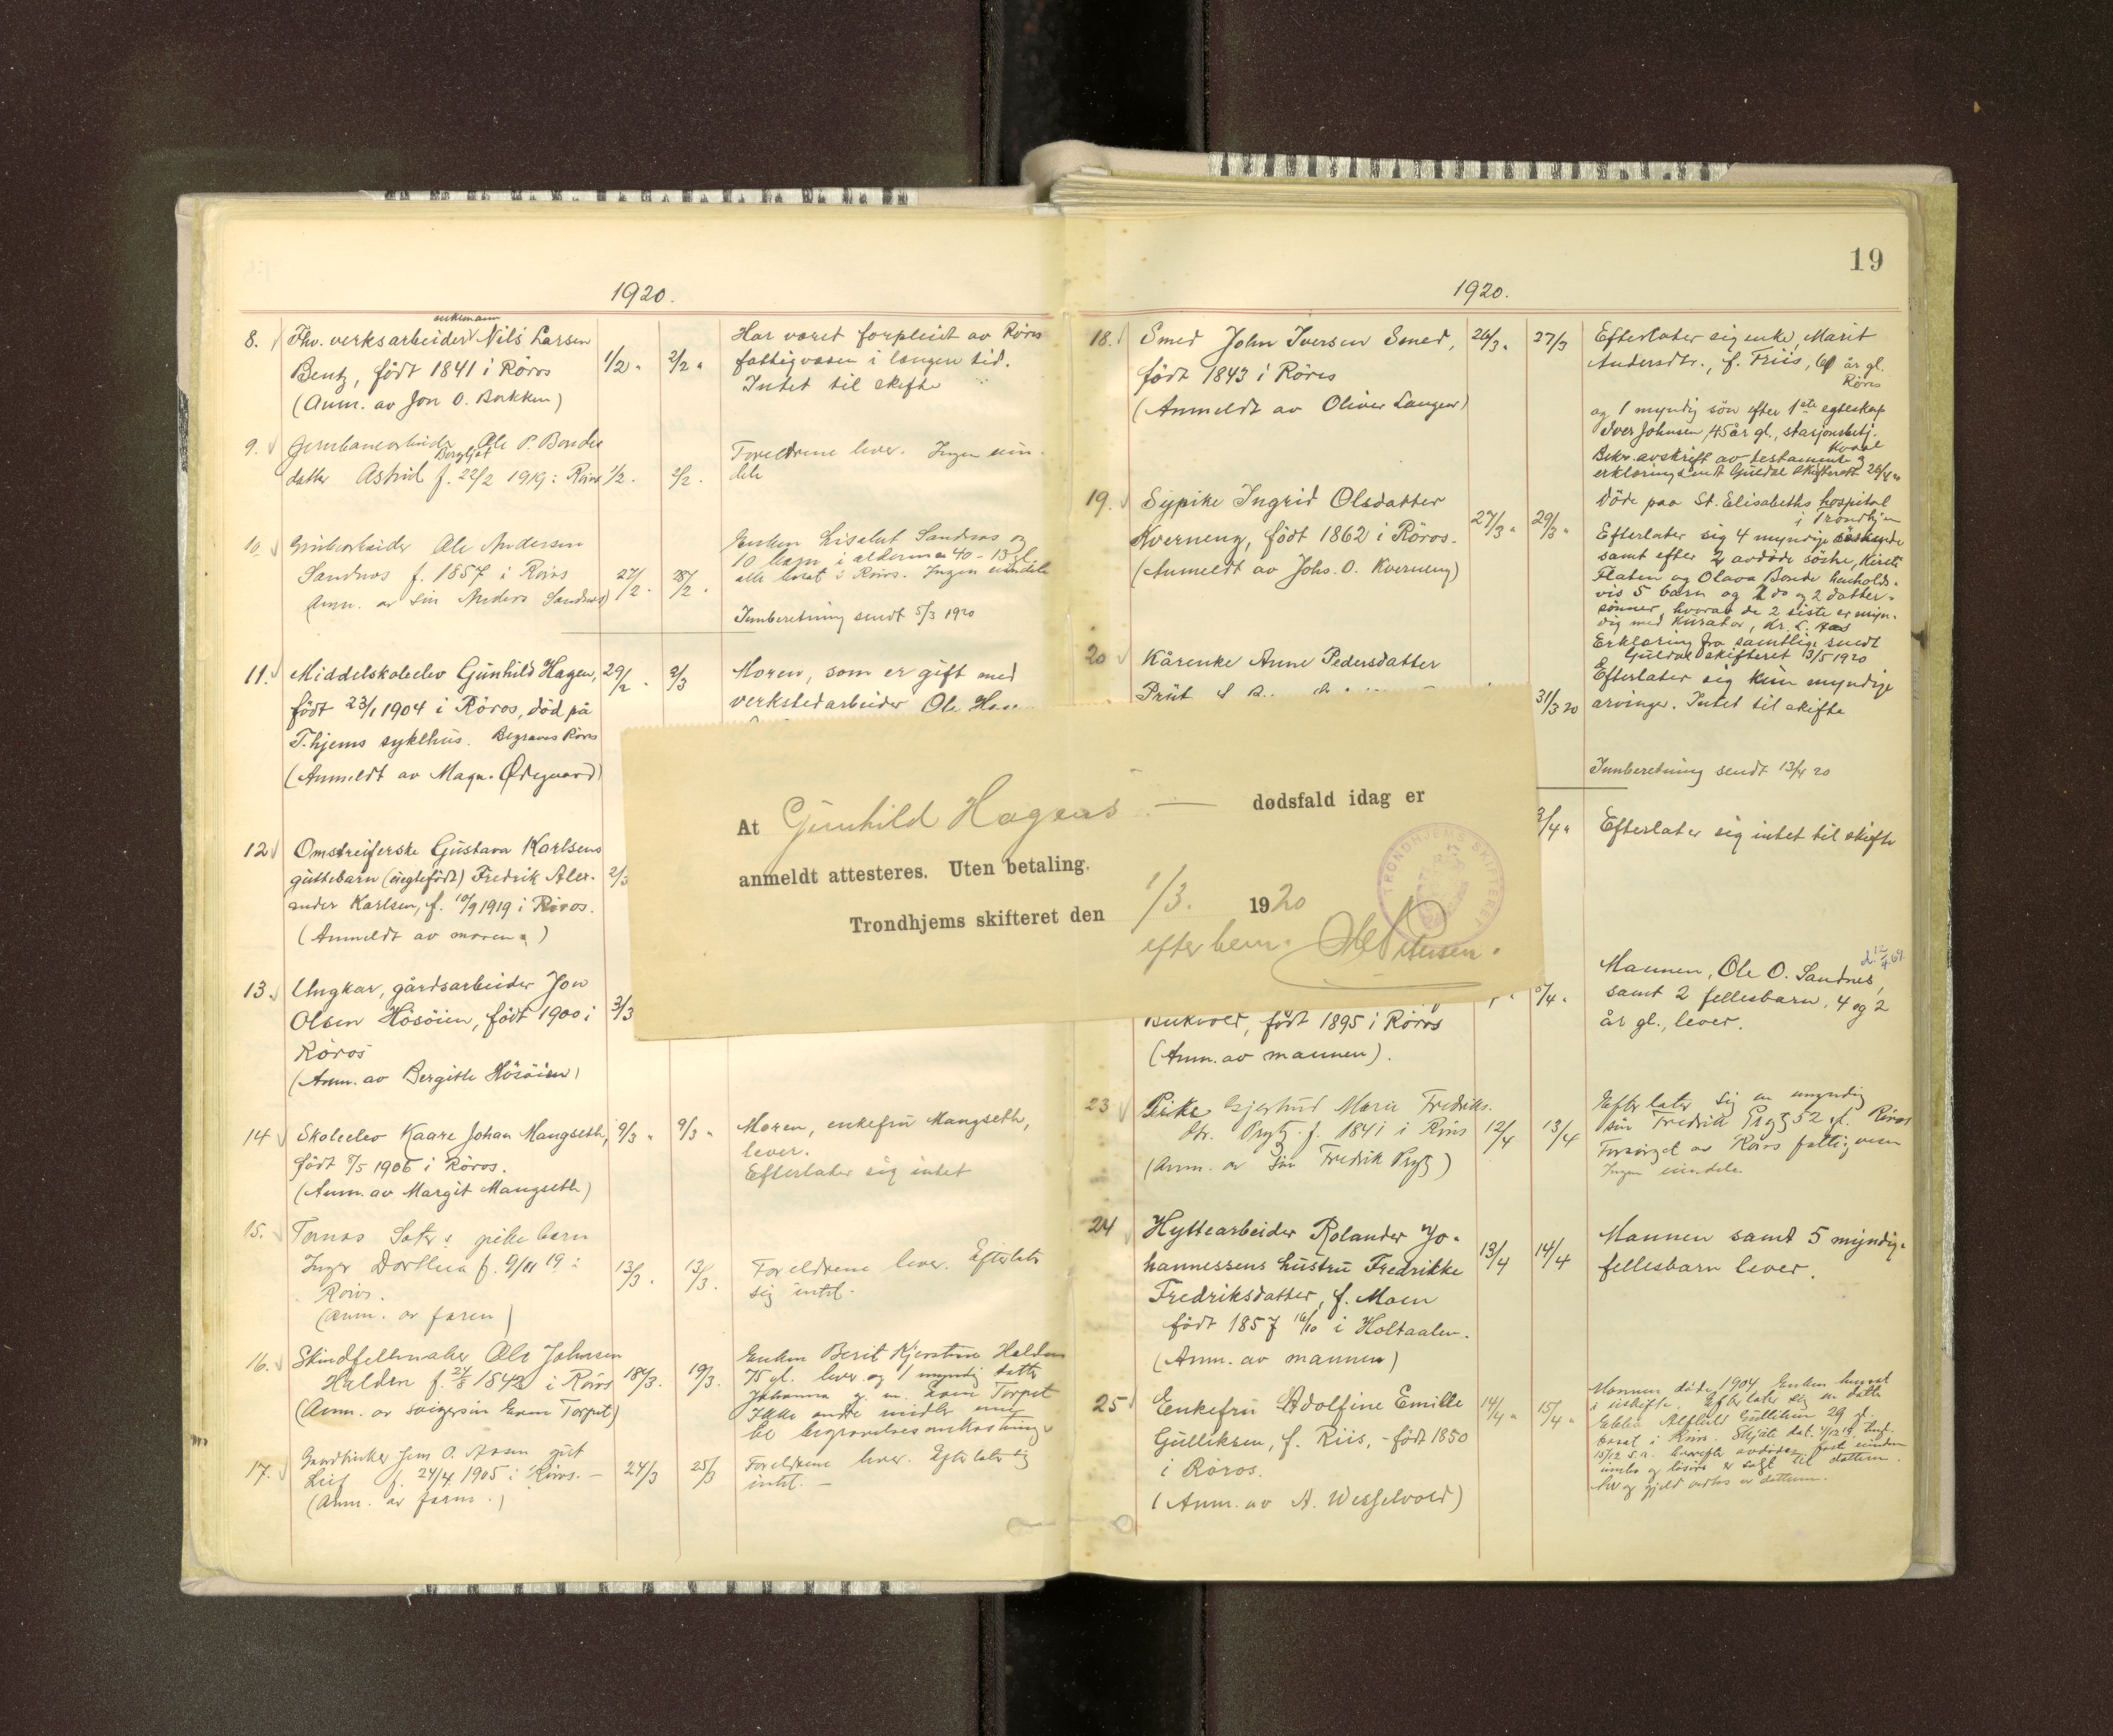 1920.
8. Fhv. verksarbeider enkemann Nils Larsen
Bentz, født 1841 i Röros
(Anm. av Jon O. Bakken)
1/2 "
2/2 "
Har været forpleiet av Røros
fattigvæsen i længere tid.
Intet til skifte
9. Jernbanearbeider Ole P. Bondes
datter Astrid Bergljot f. 22/2 1919 i Røros
1/2.
2/2.
Forældrene lever. Ingen eien-
dele
10. Ole Andersen
Sandnes f. 1857 i Røros
(Anm. av søn Anders Sandnes)
27/2.
28/2.
Enken Lisabet Sandnes og
10 barn i alderen 40 - 13 år
alle bosat i Røros. Ingen eiendele
Innberetning sendt 5/3 1920
11. Middelskoleelev Gunhild Hagen,
født 23/1 1904 i Röros, død på
T.hjems sykehus. Begraves Røros
(Anmeldt av Magn. Ødegaard)
29/2.
2/3
Moren, som er gift med
verkstedarbeider Ole
12 Omstreiferske Gustava Karlsens
guttebarn (uegtefödt) Fredrik Alex-
ander Karlsen, f. 10/9 1919 i Röros.
(Anmeldt av moren)
2/3
13. Ungkar, gårdsarbeider Jon
Olsen Hösöien, født 1900 i
Röros
(Anm. av Bergitte Hösöien)
3/3
14 Skoleelev Kaare Johan Mangseth,
født 8/5 1906 i Röros.
(Anm. av Margit Mangseth)
9/3 "
9/3 "
Moren, enkefru Mangseth,
lever.
Efterlater sig intet
15. Tomas pikebarn
Inga Dorthea f. 9/11 19 i
Røros.
(Anm. av faren)
13/3.
13/3.
Forældrene lever. Efterlater
sig intet.
16. Skindfellmaker Ole Johnsen
Halden f. 24/8 1842 i Røros
(Anm. av svigersøn Torpet)
18/3.
19/3.
Enken Berit Kjerstine Halden
75 år lever og 1 myndig datter
Johanna g. m. Torpet
Ikke andre midler enn
til begravelsesomkostninger
17. Jens O. Aasen gut
Leif f. 24/4 1905 i Røros. -
(Anm. av faren.)
24/3
25/3
Forældrene lever. Efterlater sig
intet. -
At Gunhild Hagens — dødsfald idag er
anmeldt attesteres. Uten betaling.
Trondhjems skifteret den 1/3. 1920
efter bem.
TRONDHJEMS SKIFTERET
19
1920.
18. Smed John Iversen Smed,
født 1843 i Röros
(Anmeldt av Oliver Langen)
26/3 "
27/3
Efterlater sig enke, Marit
Andersdtr., f. Friis, år gl.
Röros
og 1 myndig sön efter 1ste egteskap
Iver Johnsen, 45 år gl., stasjonsbetj.
Kvaal
Bekr. avskrift av testamente og
erklæring sendt Guldal skifterett 26/4 20
19. Sypike Ingrid Olsdatter
Kverneng, født 1862 i Röros.
(Anmeldt av Johs. O. Kverneng)
27/3 "
29/3 "
Döde paa St. Elisabeths hospital
i Trondhjem
Efterlater sig 4 myndige söskende
samt efter 2 avdöde söstre, Kirsti
Flaten og Olava Bonde henholds-
vis 5 barn og 2 do og 2 datter-
sönner, hvorav de 2 siste er myn-
dig med kurator,
Erklæring fra samtlige sendt
Guldal skifteret 13/5 1920
20 Kårenke Anne Pedersdatter
Prüt
31/3 20
Efterlater sig kun myndige
arvinger. Intet til skifte
Innberetning sendt 13/4 20
3/4 "
Efterlater sig intet til skifte
født 1895 i Röros
(Anm. av mannen).
6/4 "
Mannen, Ole O. Sandnes,
samt 2 fellesbarn, 4 og 2
år gl., lever.
23 Pike Gjertrud Marie Fredriks-
dtr. Prytz f. 1841 i Røros
(Anm. av søn Fredrik Prytz)
12/4
13/4
Efterlater sig en myndig
søn Fredrik Prytz 52 år Røros
Forsørget av Røros fattigvesen
Ingen eiendele
24 Hyttearbeider Rolander Jo-
hannessens hustru Fredrikke
Fredriksdatter, f. Moen
født 1857 16/10 i Holtaalen.
(Anm. av mannen)
13/4
14/4
Mannen samt 5 myndige
fellesbarn lever.
25 Enkefru Adolfine Emilie
Gulliksen, f. Riis, - født 1850
i Röros.
(Anm. av A. Wesselvold)
14/4 "
15/4 "
Mannen døde 1904 Enken hensat
i uskifte. Efterlater sig en datter
Gulliksen 29 år
bosat i Røros. Skjøte dat.
er solgt til datteren.